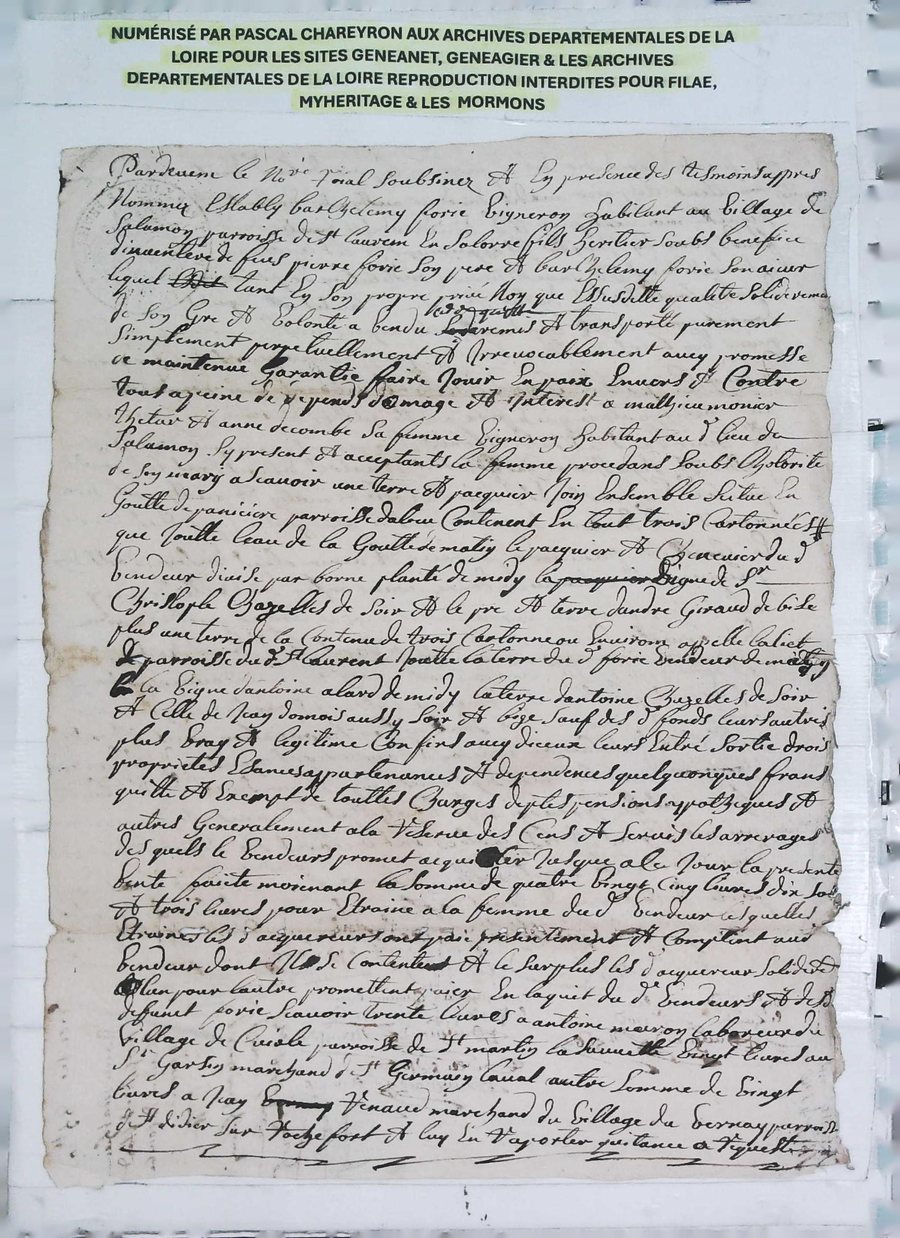 NUMÉRISÉ PAR PASCAL CHAREYRON AUX ARCHIVES DEPARTEMENTALES DE LA
LOIRE POUR LES SITES GENEANET, GENEAGIER & LES ARCHIVES
DEPARTEMENTALES DE LA LOIRE REPRODUCTION INTERDITES POUR FILAE,
MYHERITAGE & LES MORMONS
Pardevent le No.re Roial Soubsinez & En presence des tesmoins appres
Nommez Estably barthelemy forie Vigneron habitant au Village de
Salamon parroisse de St laurent En Solorre fils heritier soubs benefice
dinventere de feus pierre forie son pere & barthelemy forie son
lequel tant En son propre privé Nom que Essusditte qualité solideremen
de son Gre & Volonte a vendu remis & transporté purement
Simplement perpetuellement & Irrevocablement avecq promesse
de maintenue Garantie faire Jouir En paix Envers & Contre
tous a peine de dépends domage & Interest a mathieu monier
& anne decombe Sa femme Vigneron habitant au d lieu de
Salamon Sy present & acceptants la femme procedans soubs
de son mary a scavoir une terre & pacquier Join Ensemble Situe En
Goutte de paniciere parroisse Contenent En tout trois Cartonnées
que Joutte leau de la Goutte de matin le pacquier & Chenevier du d
Vendeur divise par borne planté de midy la Vigne de Sr
Christople Chazelles de Soir & le pre & terre dandre Giraud de bize
plus une terre de la Contenu de trois Cartonne ou Environ appelle
parroisse du d St laurent Joutte la terre du d forie Vendeur de matin
la Vigne dantoine alard de midy la terre dantoine Chazelles de Soir
& Celle de Jean domois aussy Soir & bize Sauf des d fonds leurs autres
plus Vray & legitime Confins avecq diceux leurs Entré Sortie drois
proprietés Esances appartenances & dependences quelquonques frans
quitte & Exempt de touttes Charges deptes pensions ypotheques &
autres Generalement a la Reserve des Cens & Servis les arrerages
des quels le Vendeurs promet acquitter Jusque a Ce Jour la presente
Vente faitte moienant la Somme de quatre Vingt Cinq livres dix
& trois livres pour Etraine a la femme du d Vendeur lesquelles
Etraines les d acquereurs ont paie presentement & Comptent aud
Vendeur dont Il se Contentent & le Surplus les d acquereur
lun pour lautre promettent paier En laquit du d Vendeurs &
defunt forie Scavoir trente livres a antoine maron laboreur du
Village de parroisse de St martin la Vingt livres au
Sr Garsin marchand de St Germain laval autre Somme de Vingt
livres a Jean Renaud marchand du Village du Vernay parroisse
de St didier Sur Rochefort & luy En Raporter quitance a